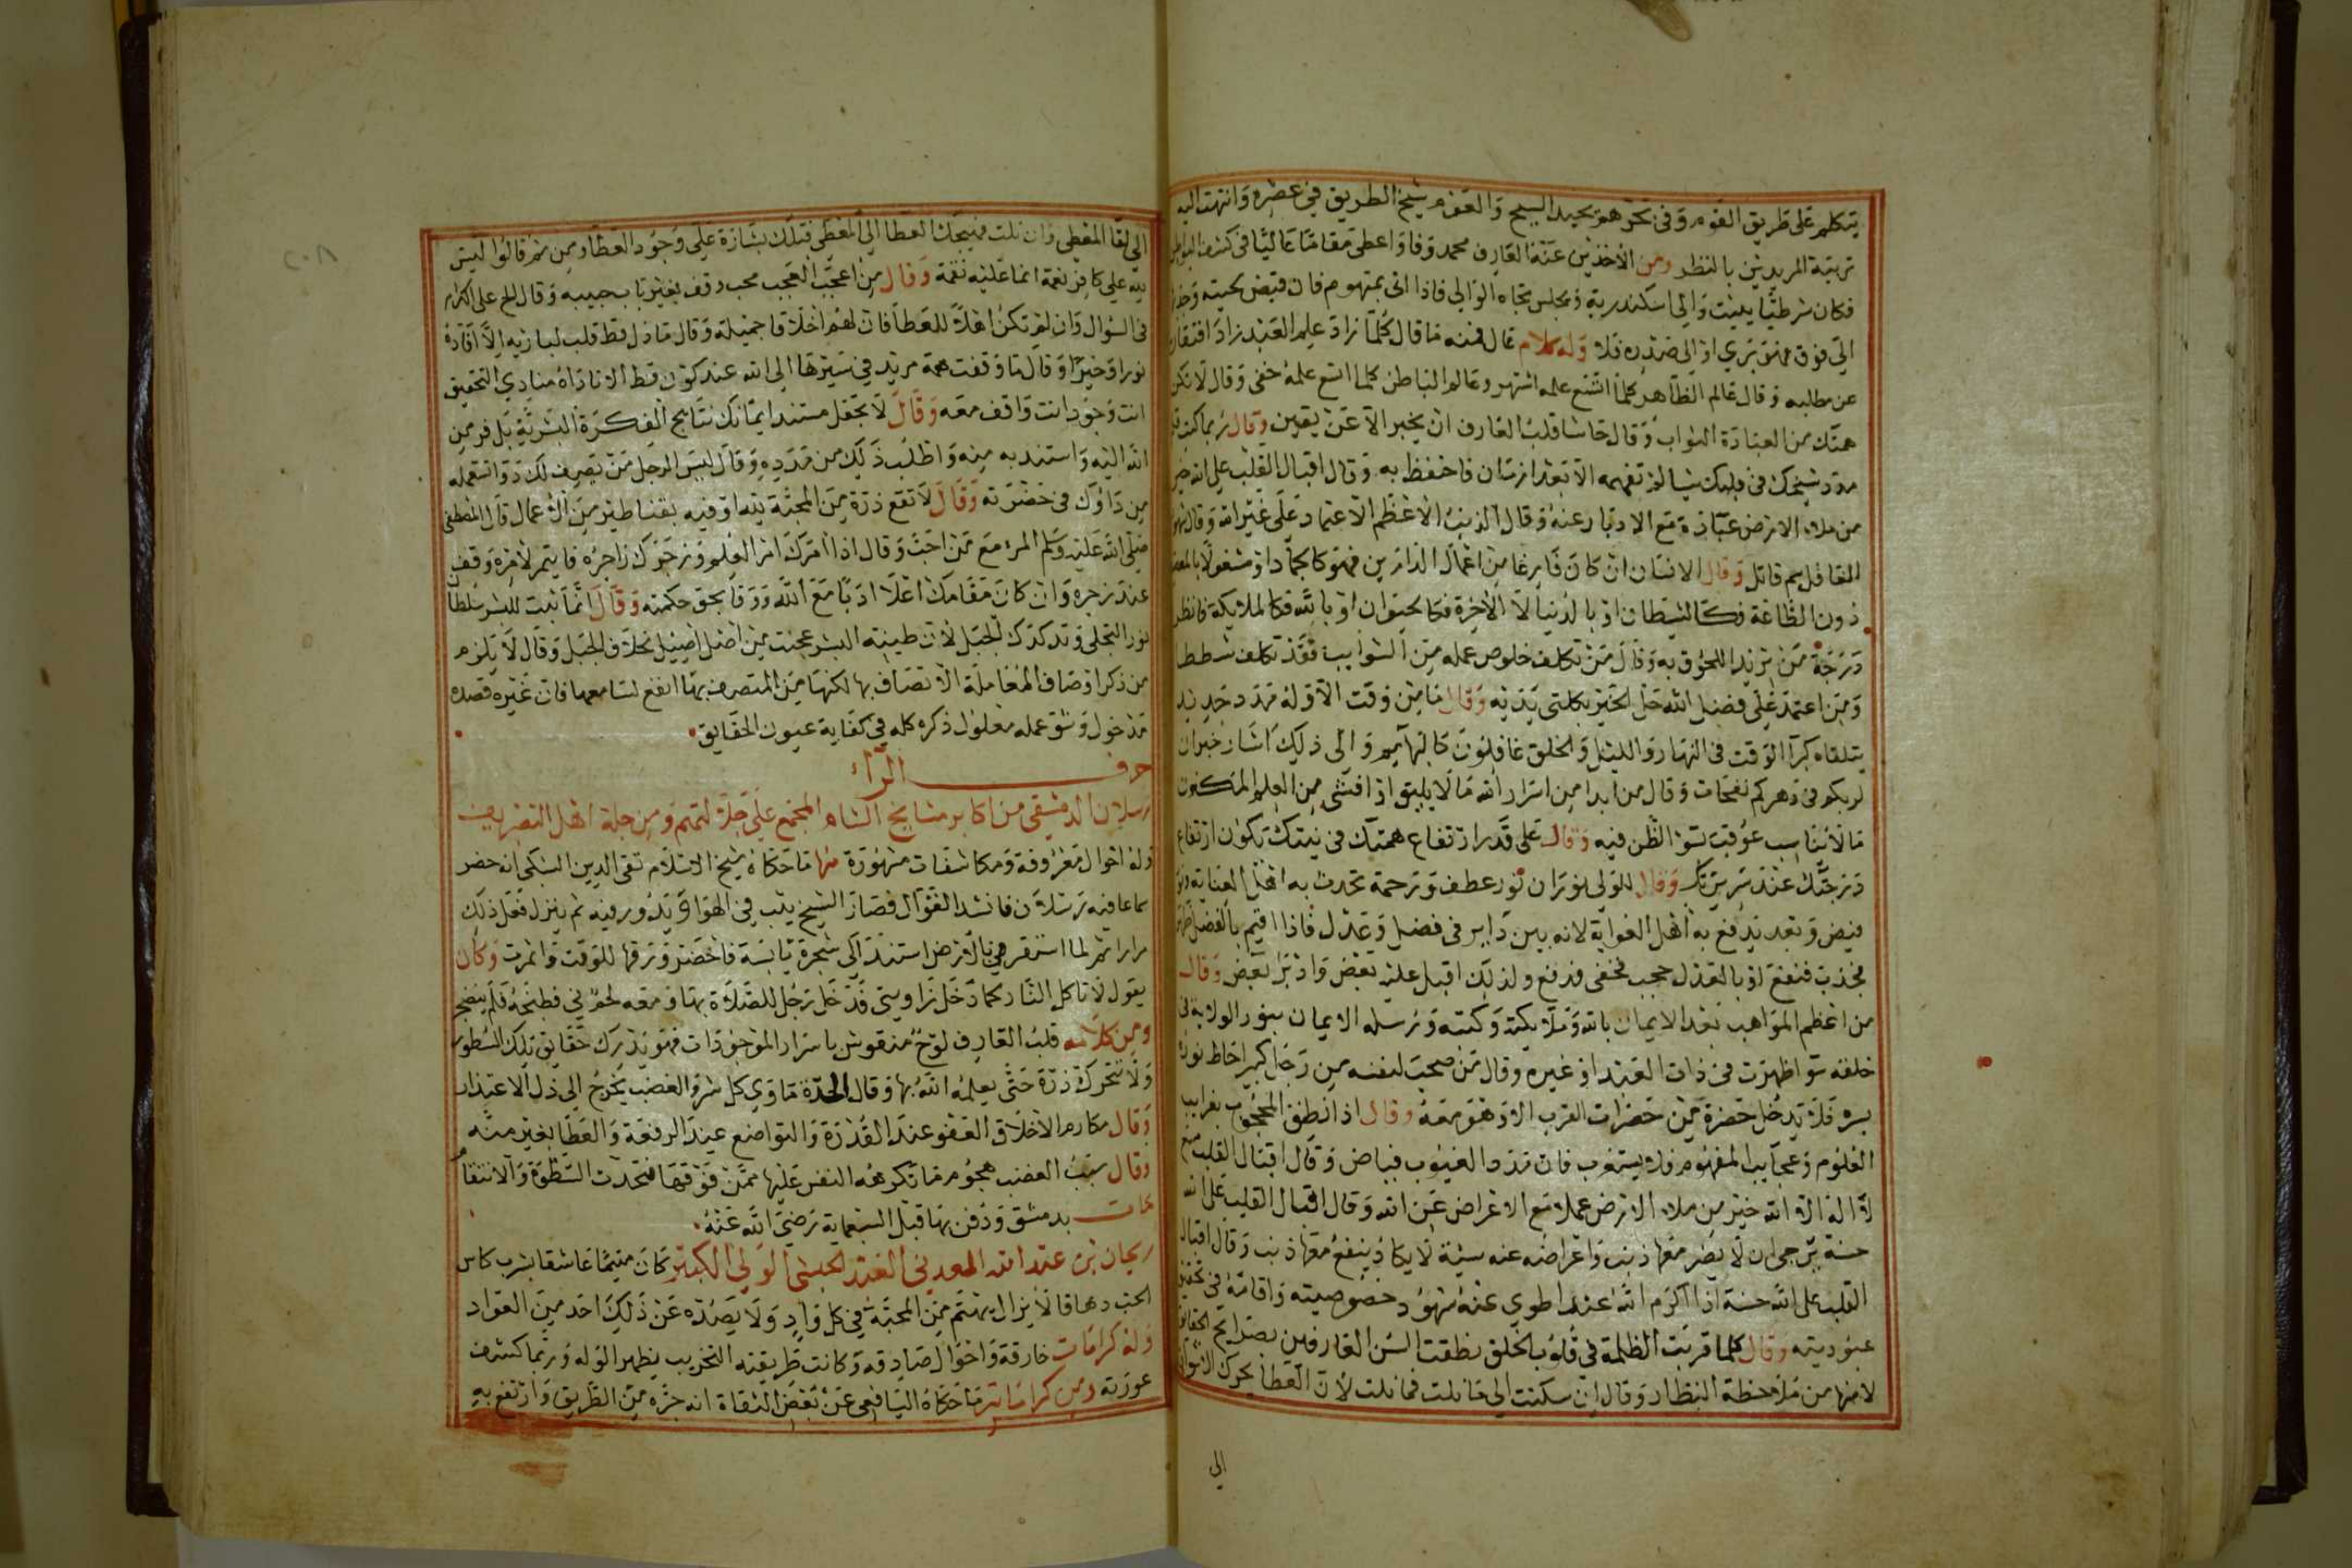 يتكلم على طريق القوم وفى نحو هو يحيد السبح والعوم شيخ الطريق في عصره وانتهت اليه
تربية المريدين بالنظر ومن الآخذين عنه العارف محمد وفا واعطى مقاما عاليا فى كشف البواطن
فكان شرطيا ببيت والى اسكندرية ومجلس تجاه الوالى فاذا اتى بمتهوم فان قبض لحيته وجذبها
الى فوق فهو بري او الى صدره فلا وله كلام عال فمنه ما قال كلما زاد علم العبد زاد افتقاره
عن مطلبه وقال عالم الظاهر كلما اتسع علمه اشتهر وعالم الباطن كلما اتسع علمه خفى وقال لا تكن
همتك من العبادة الثواب وقال حاشا قلب العارف ان يخبر الا عن يقين وقال ربما كتب
مدد شيخك فى قلبك شيا لم تفهمه الا بعد ازمان فاحتفظ به وقال اقبال القلب على الله خير
من ملاء الارض عبادة مع الادبار عنه وقال الذنب الاعظم الاعتماد على غير الله وقال
الغافل سم قاتل وقال الانسان ان كان فارغا من اعمال الدارين فهو كالجماد او مشغولا
دون الطاعة فكالشيطان او بالدنيا لا الاخرة فكالحيوان او بالله فكالملايكة فانظر
درجة من تريد اللحوق به وقال من تكلف خلوص عمله من الشوايب فقد تكلف شططا
ومن اعتمد على فضل الله حل الخير بكلتى يديه وقال ما من وقت الا وله مدد جديد
يتلقاه كبرآ الوقت فى النهار والليل والخلق غافلون كالبهايم والى ذلك اشار خبر ان
لربكم فى دهركم نفحات وقال من ابدا من اسرار الله ما لا يليق او افشى من العلم المكنون
ما لا يناسب عوقب بسو الظن فيه وقال على قدر ارتفاع همتك فى نيتك تكون ارتفاع
درجتك عند سريرتك وقال للولى نوران نور عطف ورحمة تجدب به اهل العناية ونور
فيض وبعد يدفع به اهل الغواية لانه بين داير فى فضل وعدل فاذا اقيم بالفضل
فجذب فنفع او بالعدل حجب فخفى فدفع ولذلك اقبل عليه بعض وادبر بعض وقال
من اعظم المواهب بعد الايمان بالله وملايكته وكتبه ورسله الايمان بنور الولاية فى
خلقه سوا ظهرت فى ذات العبد او غيره وقال من صحب لنفسه من رجل كبير احاط نوره
بسره فلا يدخل حضرة من حضرات القرب الا وهو معه وقال اذا نطق المحجوب بغرايب
العلوم وعجايب الفهوم فلا يستغرب فان مدد الغيوب فياض وقال اقبال القلب مع
لا اله الا الله خير من ملاء الارض عملا مع الاعراض عن الله وقال اقبال القلب على الله
حسنة يرجى ان لا يضر معها ذنب واعراضه عنه سيئة لا يكاد ينفع معها ذنب وقال اقبال
القلب على الله حسنة اذا اكرم الله عبدا طوى عنه شهود خصوصيته واقامه فى تحقيق
عبوديته وقال كلما قربت الظلمة فى قلوب الخلق نطقت السن العارفين بصرايح الحقايق
لامنها من ملاحظة النظار وقال ان سكنت الى ما نلت فما نلت لان العطا يحرك الاشواق
الى
الى لقا المعطى وان نلت فهيجك العطا الى المعطى فتلك بشارة على وجود العطا ومن ثم قالوا ليس
لله على كافر نعمة انما عليه نقمة وقال من اعجب العجب محب وقف بغير باب حبيبه وقال الح على الكرام
فى السؤال وان لم تكن اهلا للعطا فان لهم اخلاقا جميلة وقال ما ذل قط قلب لباريه الا افاده
نورا وخيرا وقال ما وقفت همة مريد في سيرها الى الله عند كون قط الا ناداه منادي التحقيق
انت وجود انت واقف معه وقال لا تجعل مستند ايمانك نتايج الفكرة البشرية بل فر من
الله اليه واستند به منه واطلب ذلك من مدده وقال ليس الرجل من يصرف لك دوا تستعمله
من داؤك فى حضرته وقال لا تقع ذرة من المحبة لله او فيه بقناطير من الاعمال قال المصطفى
صلى الله عليه وسلم المرء مع من احب وقال اذا امرك امر العلم وزجرك زاجره فايتمر لامره وقف
عند زجره وان كان مقامك اعلا ادبا مع الله ووفا بحق حكمته وقال انما ثبت البشر لسلطان
نور التجلى وتدكدك الجبل لان طينة البشر عجنت من اصل اصيل بخلاف الجبل وقال لا يلزم
من ذكر اوصاف المعاملة الاتصاف بها لكنها من المتصرف بها انفع لسامعها فان غيره قصده
مدخول وسوق عمله معلول ذكره كله فى كفاية عيون الحقايق
حرف الراء
رسلان الدمشقي من اكابر مشايخ الشام المجمع على جلالتهم ومن جلة اهل التصريف
وله احوال معروفة ومكاشفات مشهورة منها ما حكاه شيخ الاسلام تقى الدين السبكى انه حضر
سماعا فيه رسلان فانشد القوال فصار الشيخ يثب فى الهوا ويدور فيه ثم ينزل فعل ذلك
مرارا ثم لما استقر فى الارض استند الى شجرة يابسة فاخضر ورقها للوقت واثمرت وكان
يقول لا تاكل النار كما دخل زاويتى قد دخل رجل للصلاة بها ومعه لحم ني فطبخه فلم ينضج
ومن كلامه قلب العارف لوح منقوش باسرار الموجودات فهو يدرك حقايق تلك السطور
ولا تتحرك ذرة حتى يعلمه الله بها وقال الحدة ماوى كل شر والغضب يخرج الى ذل الاعتذار
وقال مكارم الاخلاق العفو عند القدرة والتواضع عند الرفعة والعطا بغير منه
وقال سبب الغضب هجوم ما تكرهه النفس عليها ممن فوقها فتحدث السطوة والانتقام
مات بدمشق ودفن بها قبل السبعماية رضى الله عنه
ريحان بن عبد الله العدني العبد الحبشى الولي الكبير كان متيما عاشقا يشرب كاس
الحب دهاقا لا يزال يهتم من المحبة في كل واد ولا يصده عن ذلك احد من العواد
وله كرامات خارقة واحوال صادقه وكانت طريقته التخريب يظهر الوله وربما كشف
عورته ومن كراماته ما حكاه اليافعى عن بعض الثقاة انه جره من الطريق وارتفع به
٢٠٨